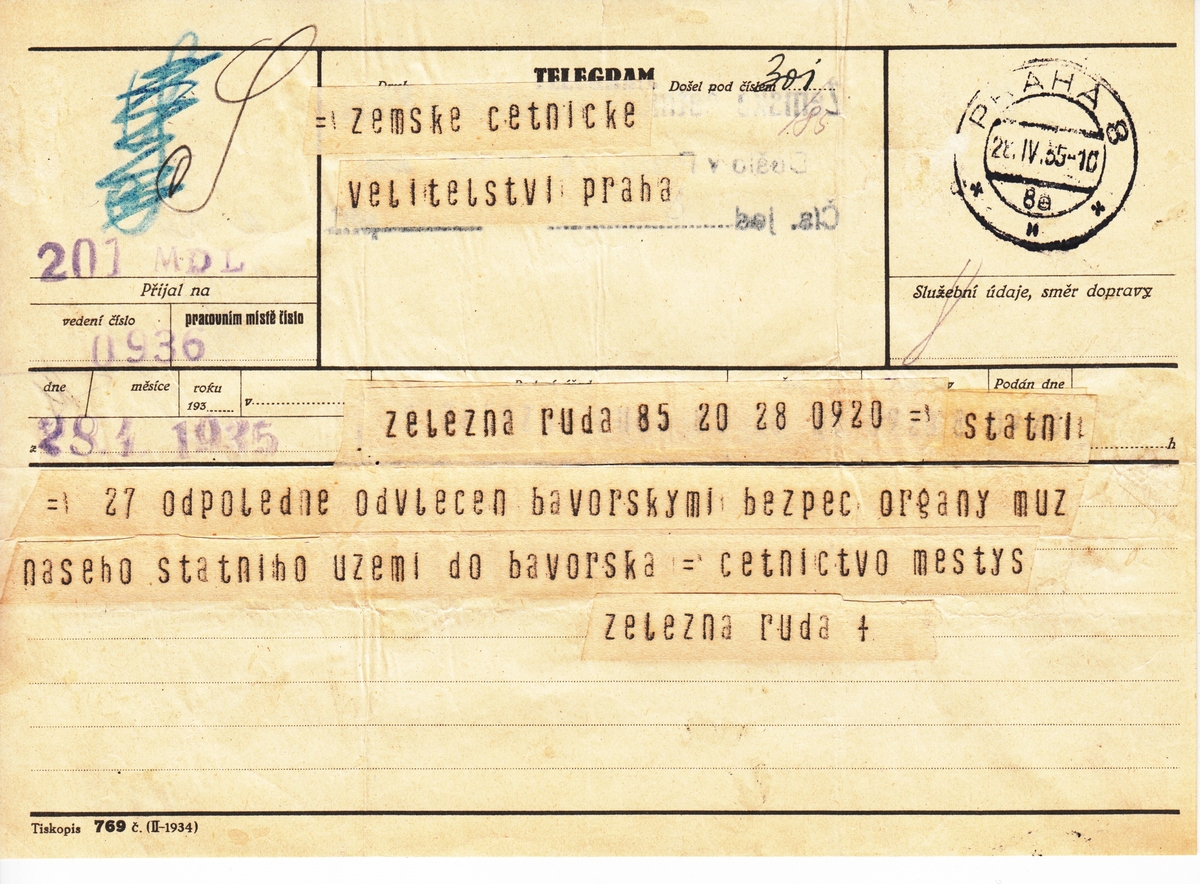 TELEGRAM
Došel pod číslem 301
185
= zemske cetnicke
velitelstvi praha
PRAHA 8
28.IV.35-10
8a
201 MDL
Příjal na
vedení číslo
pracovním místě číslo
0936
Služební údaje, směr dopravy
dne
měsíce
roku
193
v
Podán dne
28 4 1935
z
h
zelezna ruda 85 20 28 0920 = statni
= 27 odpoledne odvlecen bavorskymi bezpec organy muz
naseho statniho uzemi do bavorska = cetnictvo mestys
zelezna ruda +
Tiskopis 769 č. (II-1934)